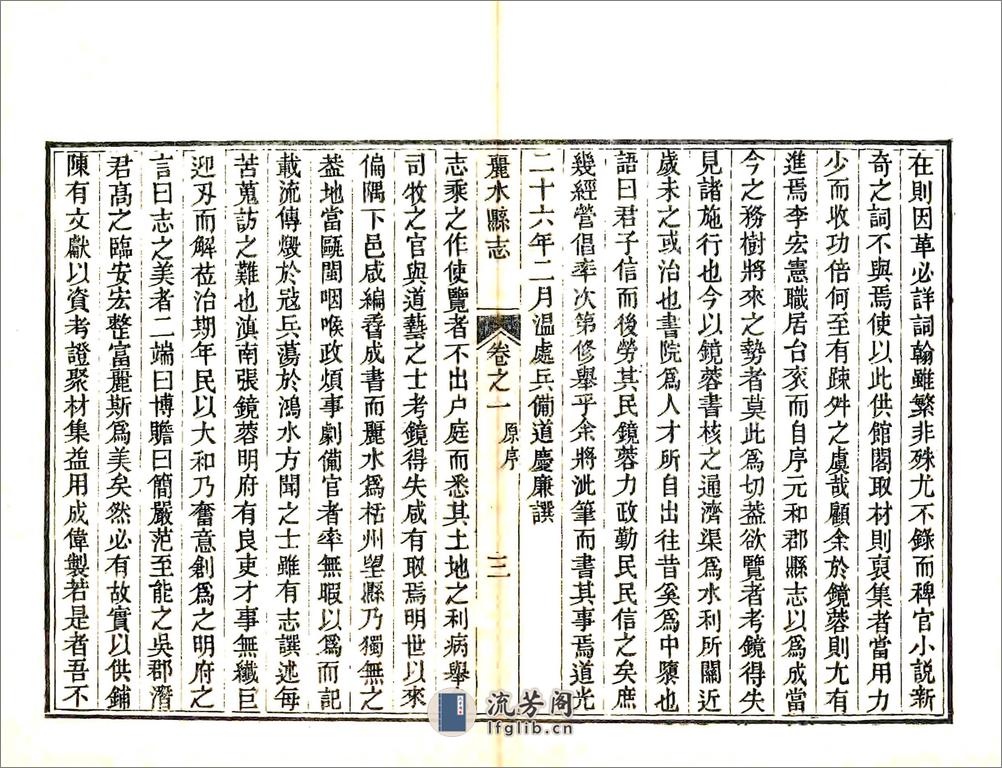 在則因革必詳詞翰雖繁非殊尤不錄而稗官小説新
奇之詞不與焉使以此供館閣取材則裒集者當用力
少而收功倍何至有踈舛之虞哉顧余於鏡蓉則尢有
進焉李宏憲職居台衮而自序元和郡縣志以爲成當
今之務樹將來之勢者莫此爲切葢欲覽者考鏡得失
見諸施行也今以鏡蓉書核之通濟渠爲水利所關近
歲未之或治也書院爲人才所自出往昔奚爲中隳也
語曰君子信而後勞其民鏡蓉力政勤民民信之矣庶
幾經營倡率次第修舉乎余將泚筆而書其事焉道光
二十六年二月温處兵備道慶廉譔
麗水縣志
卷之一
原序
三
志乘之作使覽者不出户庭而悉其土地之利病舉
司牧之官與道藝之士考鏡得失咸有取焉明世以來
偏隅下邑咸編香成書而麗水爲栝州望縣乃獨無之
葢地當甌閩咽喉政煩事劇備官者率無暇以爲而記
載流傳燬於寇兵蕩於鴻水方聞之士雖有志譔述每
苦蒐訪之難也滇南張鏡蓉明府有良吏才事無纖巨
迎刃而解莅治期年民以大和乃奮意創爲之明府之
言曰志之美者二端曰博贍曰簡嚴范至能之吳郡潛
君高之臨安宏整富麗斯爲美矣然必有故實以供鋪
陳有文獻以資考證聚材集益用成偉製若是者吾不
流芳阁
lfglib.cn